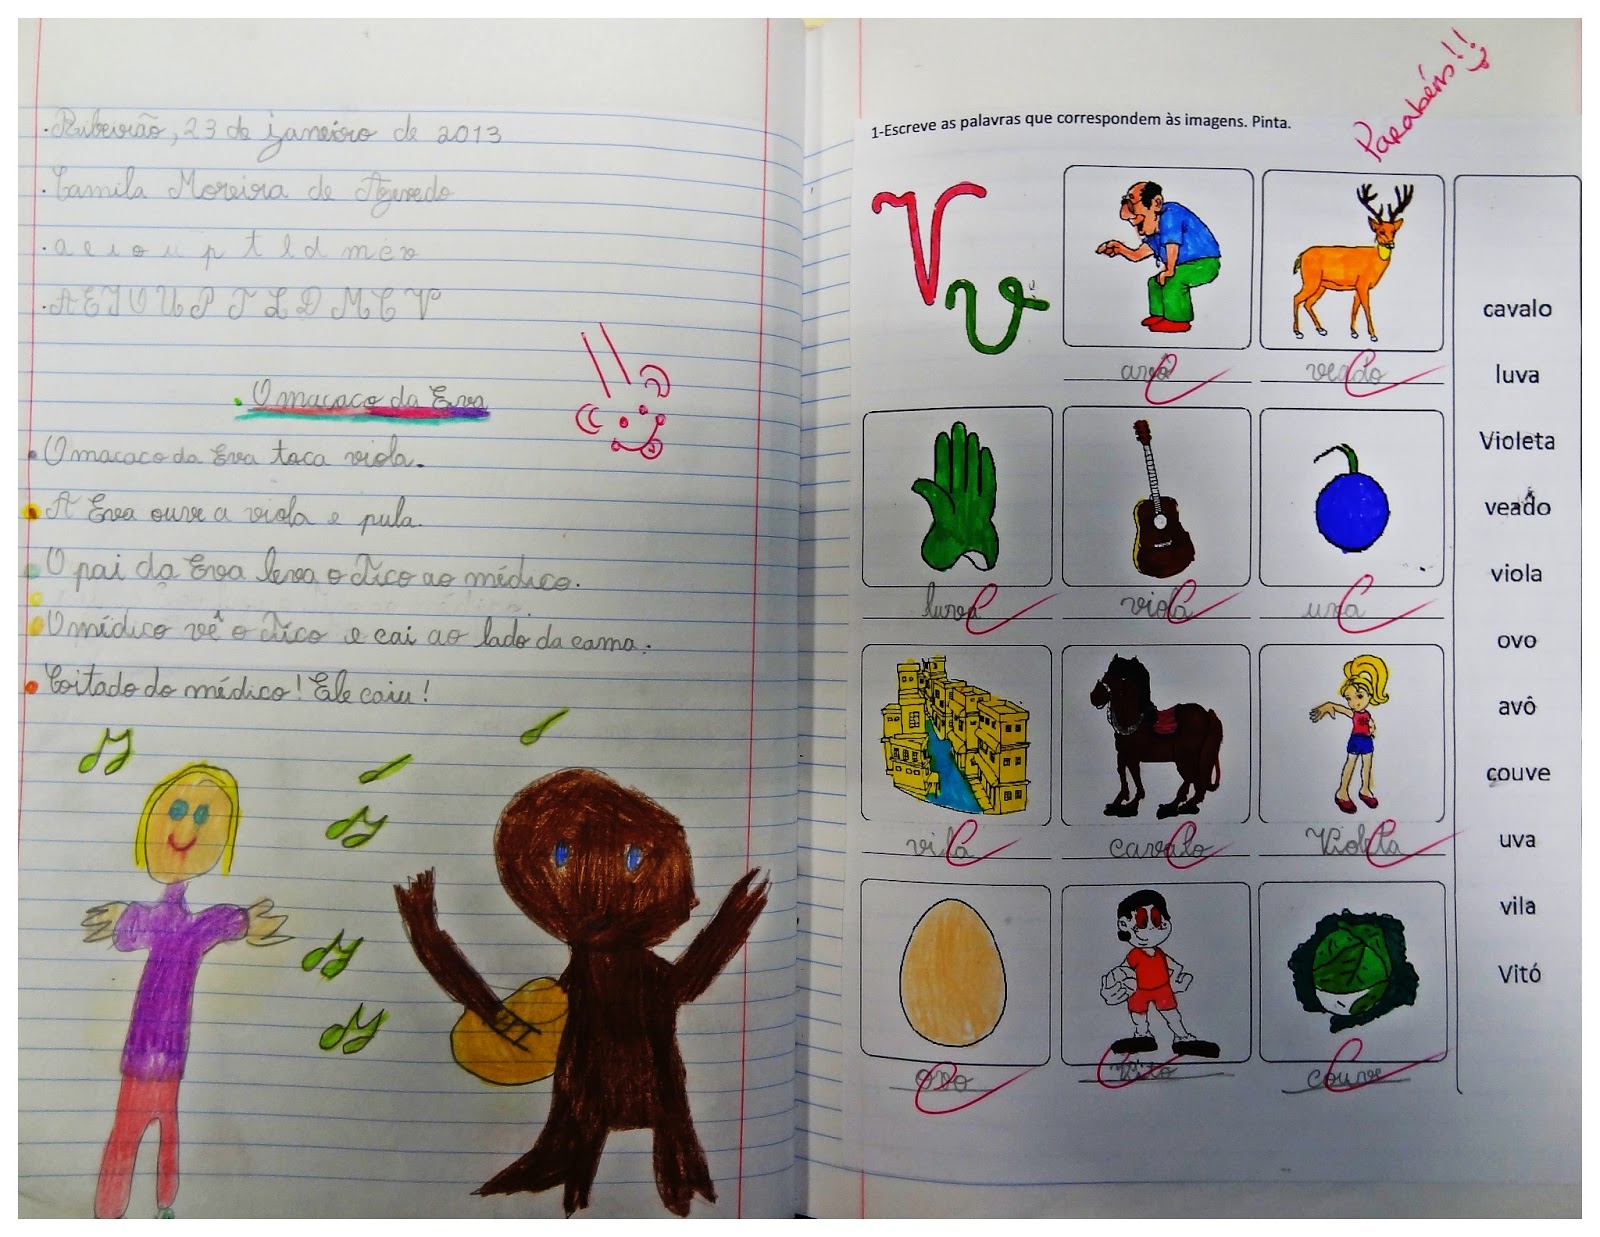 .Ribeirão, 23 de janeiro de 2013
.Camila Moreira de Azevedo
.a e i o u p t l d m c v
.A E I O U P T L D M C V
.O macaco da Eva
.O macaco da Eva toca viola.
.A Eva ouve a viola e pula.
.O pai da Eva leva o Tico ao médico.
.O médico vê o Tico e cai ao lado da cama.
.Coitado do médico! Ele caiu!
Parabéns!!
1-Escreve as palavras que correspondem às imagens. Pinta.
V v
avô veado
luva viola uva
vila cavalo Violeta
ovo Vitó couve
cavalo
luva
Violeta
veado
viola
ovo
avô
couve
uva
vila
Vitó